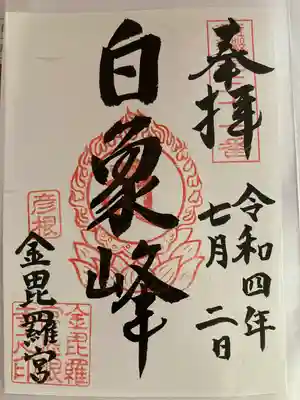 奉拝
令和四年
七月二日
白象峰
彦根
金毘羅宮
金毘羅